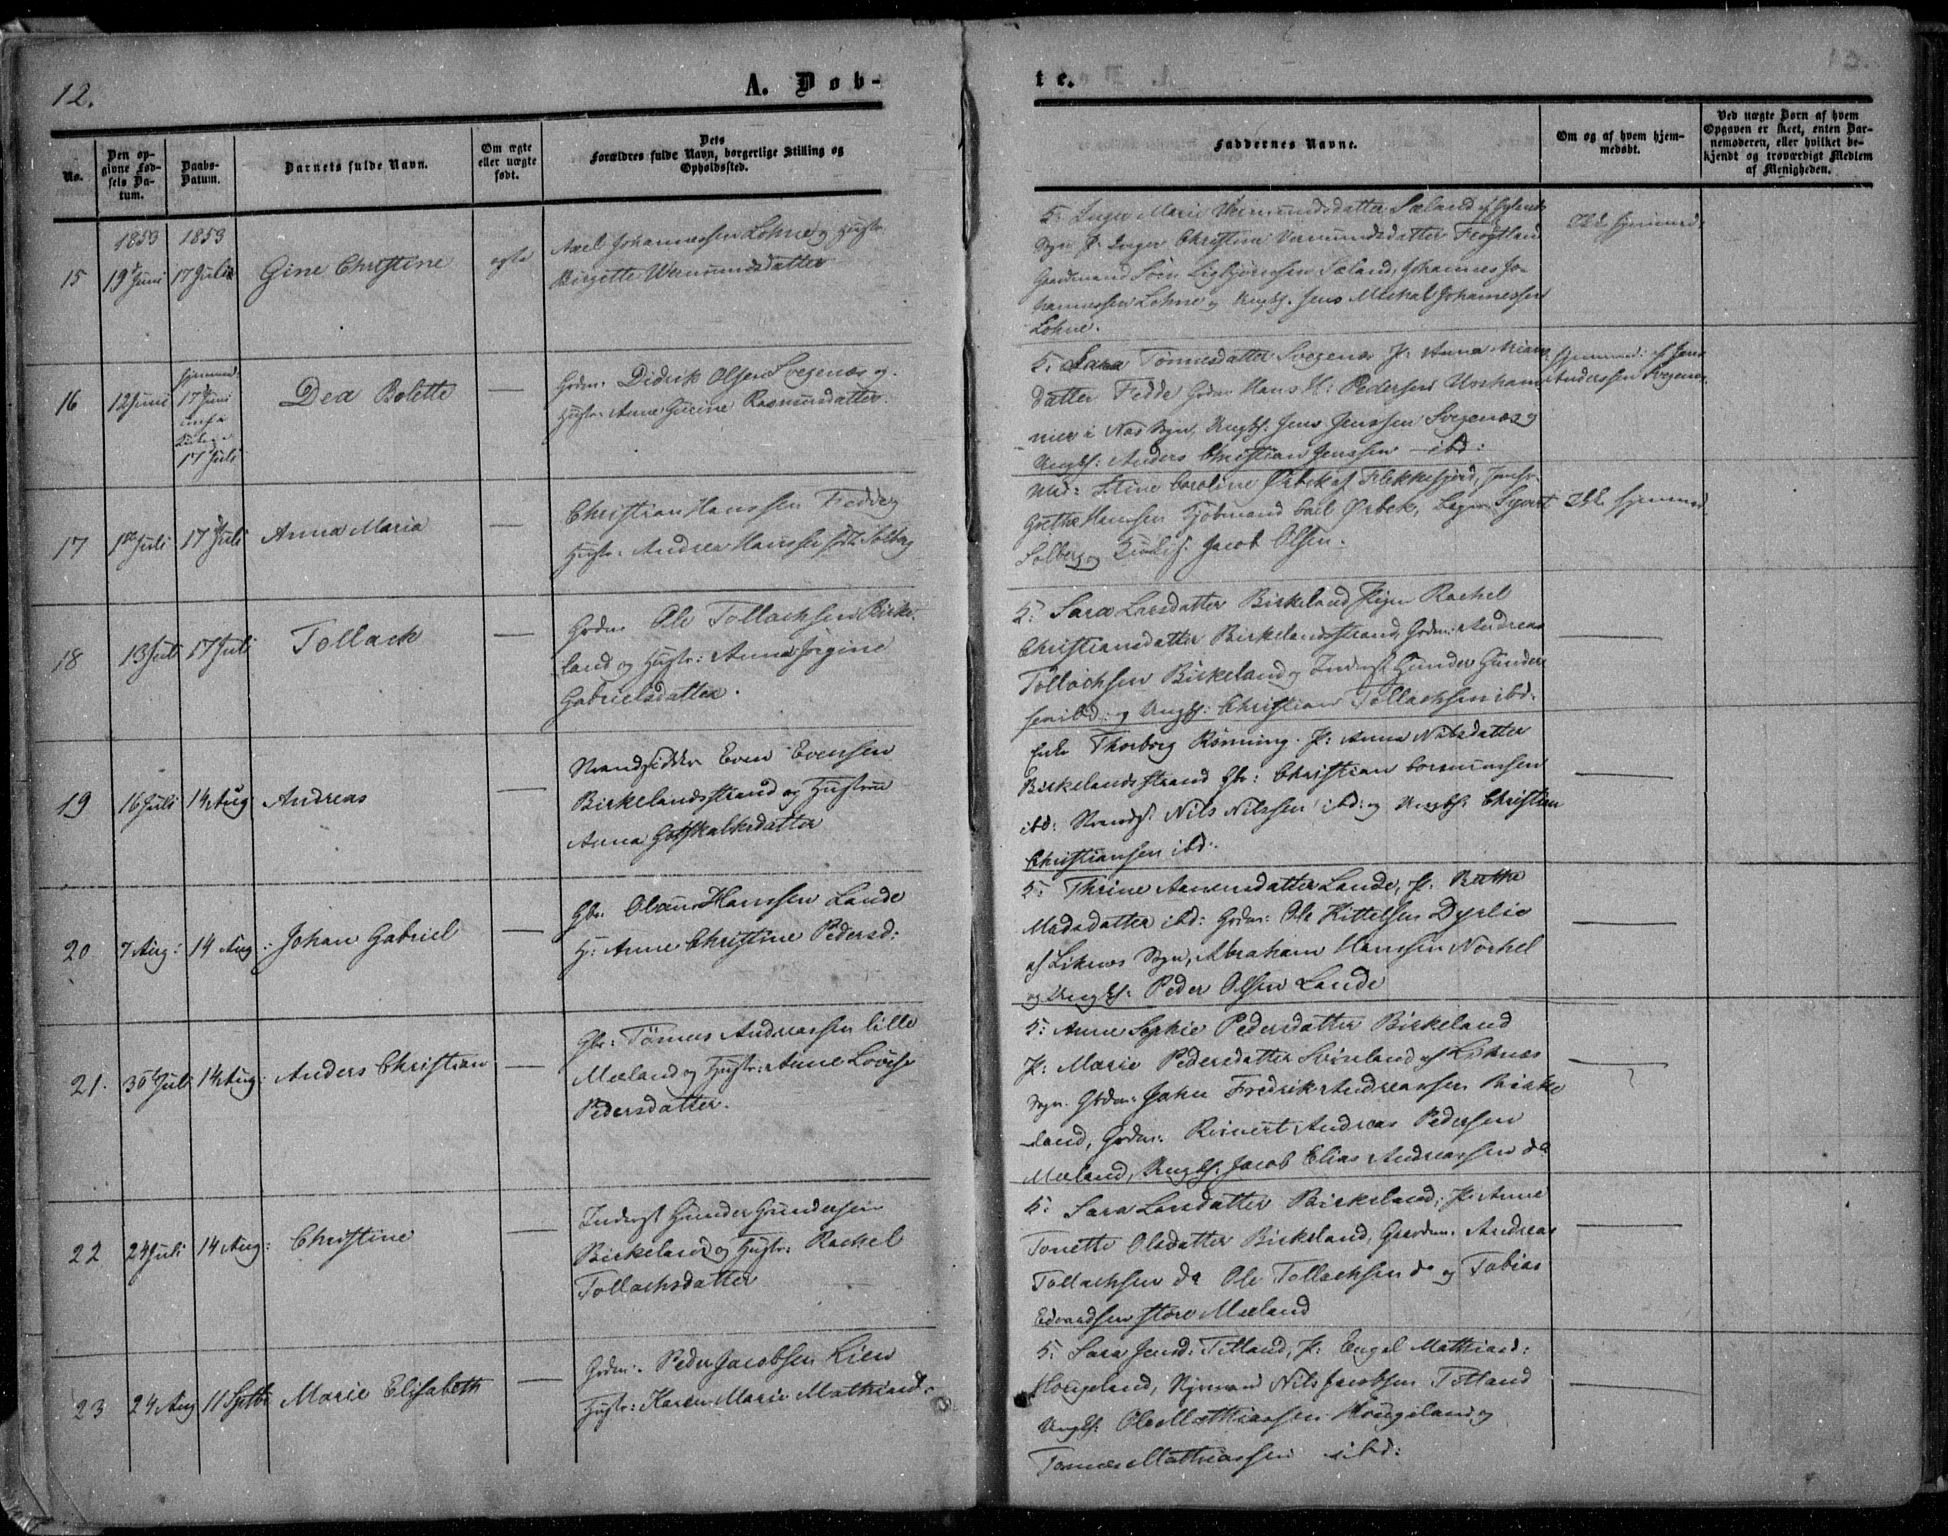 12.
A. Døb-
te.
No.
Den op-
givne Fød-
sels Da-
tum.
Daabs-
Datum.
Barnets fulde Navn.
Om ægte
eller uægte
født.
Dets
Forældres fulde Navn, borgerlige Stilling og
Opholdssted.
Faddernes Navne.
Om og af hvem hjem-
medøbt.
Ved uægte Børn af hvem
Opgaven er skeet, enten Bar-
nemoderen, eller hvilket be-
kjendt og troværdigt Medlem
af Menigheden.
1853 1853
15 19 Juni 17 Juli Gine Christine ægte
Axel Johannessen Lohne og Hustr:
Birgitte Vermundsdatter
K: Inger Marie Vermundsdatter Sæland
Sogn P: Inger Christine Vermundsdatter Frøytland
Gaardmand Søren Sæland, Johannes Jo-
hannessen Lohne og Ungk: Jens Mikal Johannessen
Lohne.
Ikke hjemmed:
16 12 Juni hjemmed.
17 Juni
17 Juli
Dea Bolette —
Grdm: Didrik Olsen Svegenæs og
Hustr: Anne Gurine Rasmusdatter.
K: Sara Tønnesdatter Svegenæs P: Anna
datter Fedde Grdm: Hans H: Pedersen
i Næs Sogn, Ungk: Jens Jenssen Svegenæs og
Ungk: Anders Christian Jenssen ibd:
hjemmed: af Jens
Anderssen Svegenæs.
17 1ste Juli 17 Juli Anna Maria —
Christian Hanssen Fedde og
Hustr: Andrea Hanssen født Solberg
Md: Stine Caroline Ørbek af Flekkefjord, Jomfr.
Grethe Hanssen Kjøbmand Carl Ørbek, Sivert
Solberg og Jacob Olsen.
Ikke hjemmed
18 13 Juli 17 Juli Tollack —
Grdm Ole Tollachsen Birke-
land og Hustr: Anna Jorgine
Gabrielsdatter.
K: Sara Larsdatter Birkeland Pigen Rachel
Christiansdatter Birkelandsstrand, Grdm: Andreas
Tollachsen Birkeland og Inderst Gunder Gunder-
sen ibd: og Ungk: Christian Tollachsen ibd.
19 16 Juli 14 Aug: Andreas —
Strandsidder Even Evensen
Birkelandsstrand og Hustrue
Anna Gotskalksdatter
Enke Thorborg Rønning. P: Anna Nilsdatter
Birkelandsstrand Gbr: Christian
ibd: Strands: Nils Nilssen ibd: og Ungk: Christian
Christiansen ibd:
20 7 Aug: 14 Aug: Johan Gabriel —
Gbr: Olaus Hanssen Lande
H: Anne Christine Pedersd:
K: Thrine Aanensdatter Lande, P: Berthe
Madsdatter ibd: Grdm: Ole Kittelsen Dyrlie
af Liknes Sogn, Abraham Hanssen
og Ungk: Peder Olsen Lande
21. 30 Juli 14 Aug: Anders Christian —
Gbr: Tønnes Andreassen lille
Mæland og Hustr: Anne Lovise
Pedersdatter.
K: Anne Sophie Pedersdatter Birkeland
P: Marie Pedersdatter Svindland af Liknæs
Sogn. Grdm: John Fredrik Andreassen Birke-
land, Grdm: Reinert Andreas Pedersen
Mæland, Ungk: Jacob Elias Andreassen do
22 24 Juli 14 Aug: Christine —
Inderst Gunder Gundersen
Birkeland og Hustr: Rachel
Tollachsdatter
K: Sara Larsdatter Birkeland, P: Anne
Tonette Olsdatter Birkeland, Gaardm: Andreas
Tollachsen do Ole Tollachsen do og Tobias
Edvardsen store Mæland
23 24 Aug 11 Septbr Marie Elisabeth —
Grdm: Peder Jacobsen Lien
Hustr: Karen Marie Mathiasd:
K: Sara Jensd: Totland, P: Engel Matthiasd:
Hougeland, Nils Jacobsen Totland
Ungk: Ole Matthiassen Hougeland og
Tønnes Mathiassen ibd: